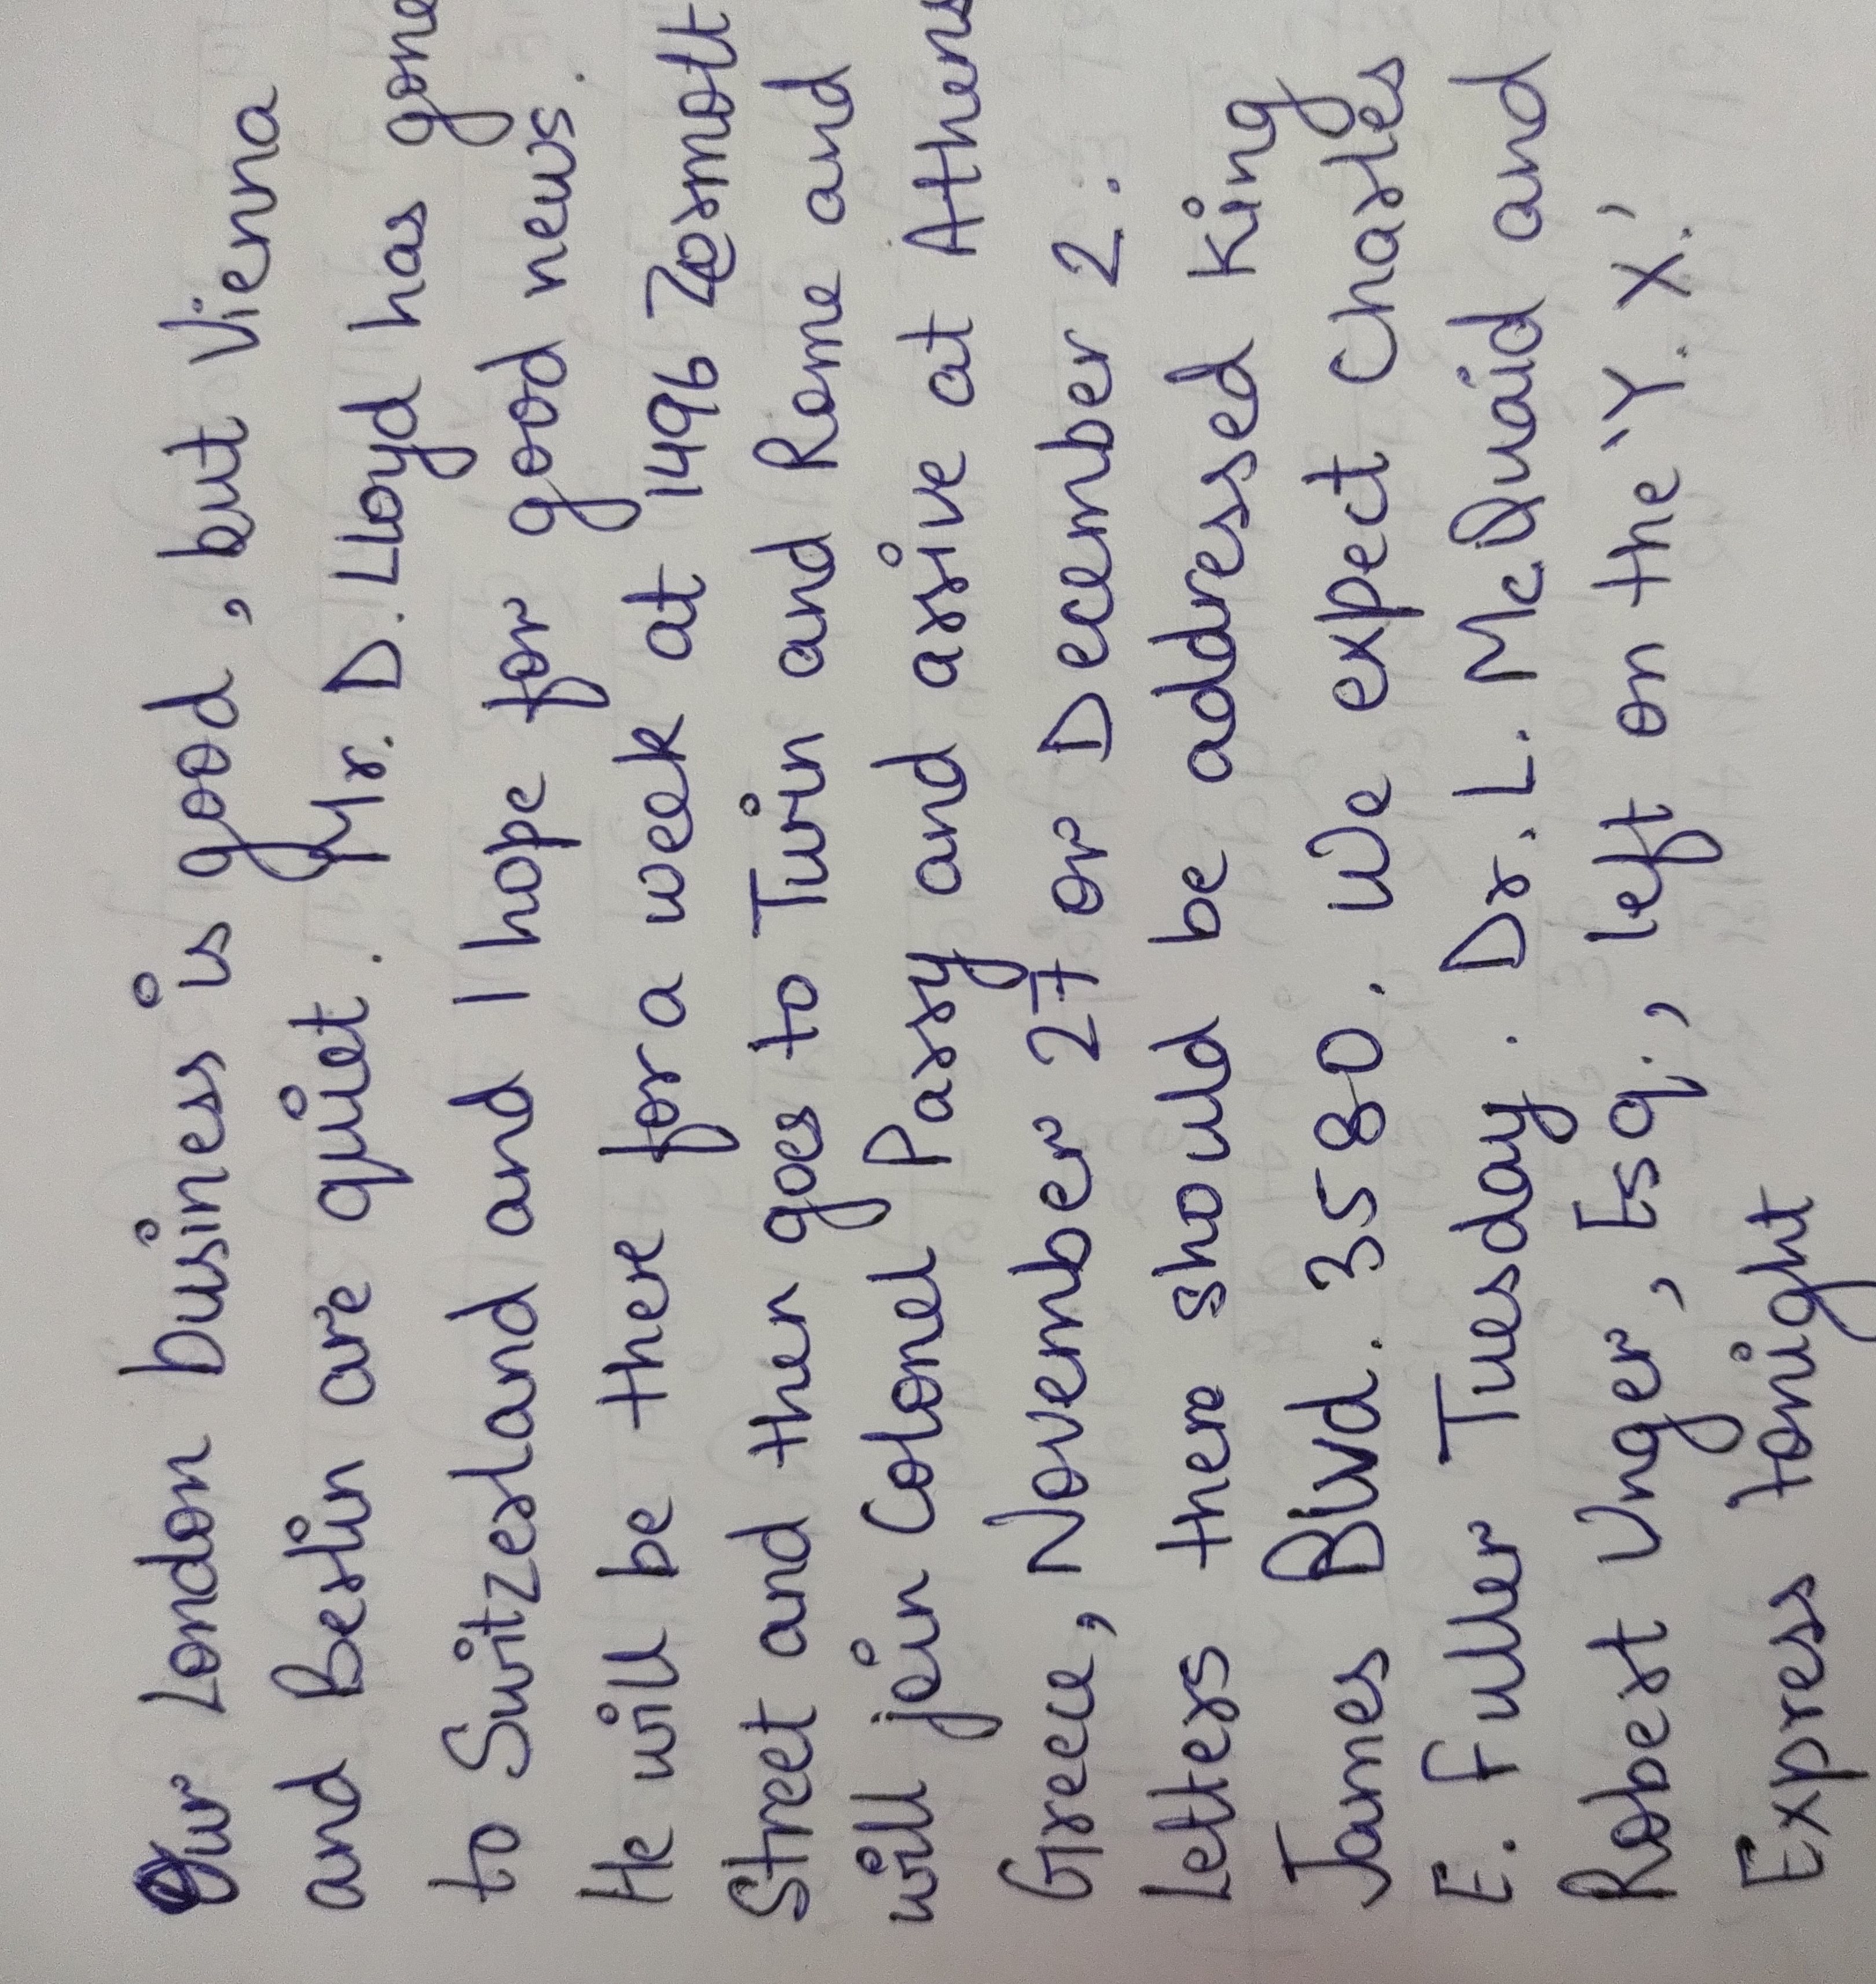 Our London business is good, but Vienna
and Berlin are quiet. Mr. D. Lloyd has gone
to Switzerland and I hope for good news.
He will be there for a week at 1496 Zermott
Street and then goes to Turin and Rome and
will join Colonel Parry and arive at Athens
Greece, November 27 or December 2.
Letters there should be addressed King
James Blvd. 3580. We expect Charles
E. Fuller Tuesday. Dr. L. McQuaid and
Robert Unger, Esq., left on the 'Y. X.'
Express tonight